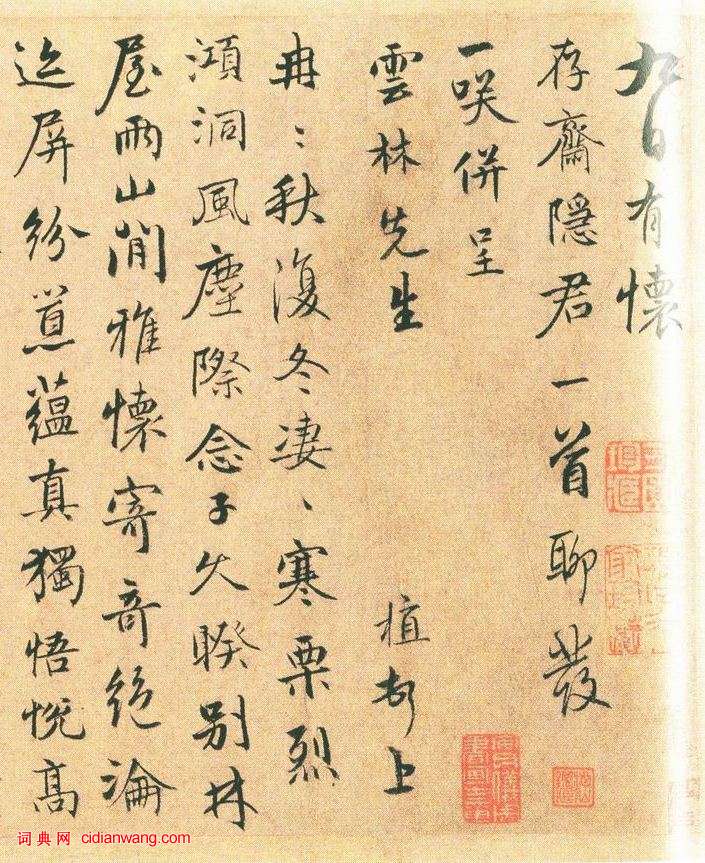 九日有懷
存齋隱君一首聊發
一咲併呈
雲林先生 植上
冉〻秋復冬淒〻寒栗烈
澒洞風塵際念子久暌別林
屋兩山間雅懷寄奇絕淪
迹屏紛蘊真獨悟悅高
词典网 cidianwang.com